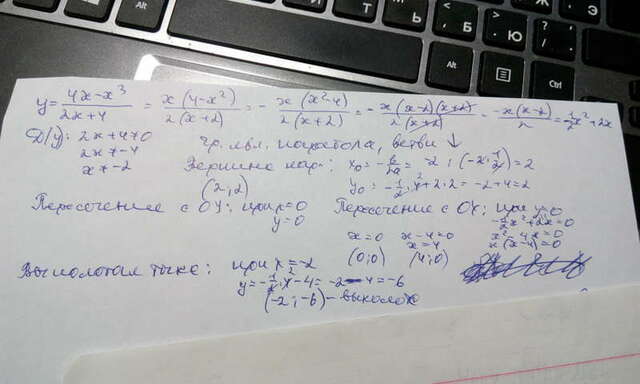 y = (4x-x³)/(2x+4) = x(4-x²)/2(x+2) = - x(x²-4)/2(x+2) = - x(x-2)(x+2)/2(x+2) = - x(x-2)/2 = -½x²+2x
D(y): 2x+4≠0
2x≠-4
x≠-2
Гр. явл. парабола, ветви ↓
Вершина пар-: x₀ = -b/2a = -2 : (-2·½) = 2
y₀ = -½·4+2·2 = -2+4=2
(2;2)
Пересечение с OY: при x=0
y=0
Пересечение с OX: при y=0
-½x²+2x=0
x²-4x=0
x(x-4)=0
x=0 x-4=0
x=4
(0;0) (4;0)
Выколотая точка: при x=-2
y=-½·4-4=-2-4=-6
(-2;-6) - выколот
Alt
Alt
Ctrl
Б
Ю
Ж
Э